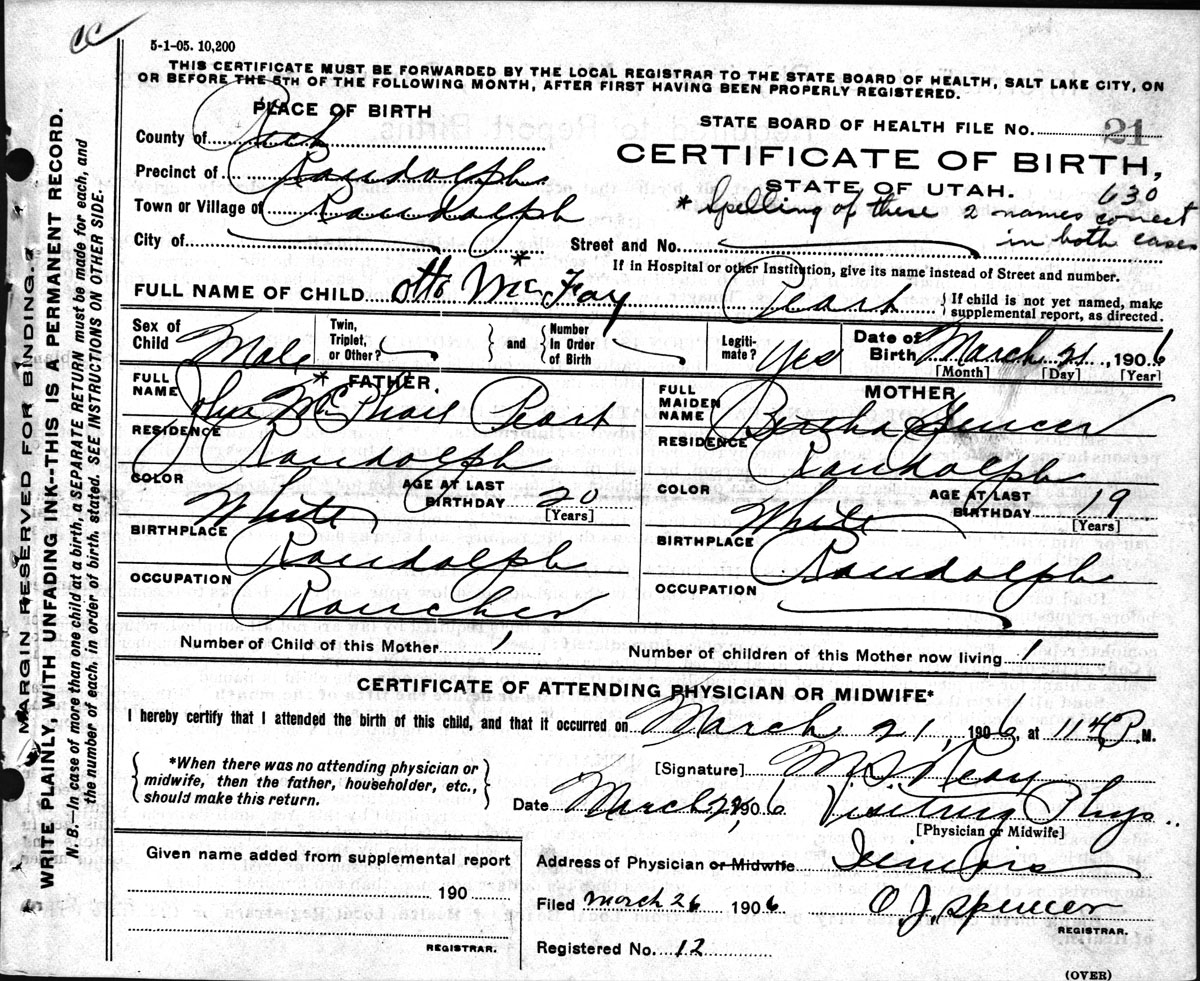 5-1-05. 10,200
THIS CERTIFICATE MUST BE FORWARDED BY THE LOCAL REGISTRAR TO THE STATE BOARD OF HEALTH, SALT LAKE CITY, ON
OR BEFORE THE 5TH OF THE FOLLOWING MONTH, AFTER FIRST HAVING BEEN PROPERLY REGISTERED.
PLACE OF BIRTH
County of Rich
Precinct of Randolph
Town or Village of Randolph
City of
STATE BOARD OF HEALTH FILE NO. 21
CERTIFICATE OF BIRTH,
STATE OF UTAH.
630
* Spelling of these 2 names correct
in both cases
Street and No.
If in Hospital or other Institution, give its name instead of Street and number.
FULL NAME OF CHILD Otto Mc* Fay Peart { If child is not yet named, make
supplemental report, as directed.
Sex of Child Male
Twin, Triplet, or Other?
} and { Number In Order of Birth
Legiti- mate? Yes
Date of Birth March 21, 1906
[Month] [Day] [Year]
* FATHER.
FULL NAME John McPhail Peart
RESIDENCE Randolph
COLOR White
AGE AT LAST BIRTHDAY 20
[Years]
BIRTHPLACE Randolph
OCCUPATION Rancher
MOTHER
FULL MAIDEN NAME Bertha Spencer
RESIDENCE Randolph
COLOR White
AGE AT LAST BIRTHDAY 19
[Years]
BIRTHPLACE Randolph
OCCUPATION
Number of Child of this Mother 1
Number of children of this Mother now living 1
CERTIFICATE OF ATTENDING PHYSICIAN OR MIDWIFE*
I hereby certify that I attended the birth of this child, and that it occurred on March 21, 1906, at 11 P. M.
{ *When there was no attending physician or
midwife, then the father, householder, etc.,
should make this return. }
[Signature] M S
Date March 1906 Visiting Phys.
[Physician or Midwife]
Given name added from supplemental report
190
REGISTRAR.
Address of Physician or Midwife
Filed March 26 1906 O. J. Spencer
REGISTRAR.
Registered No. 12
(OVER)
MARGIN RESERVED FOR BINDING.
WRITE PLAINLY, WITH UNFADING INK--THIS IS A PERMANENT RECORD.
N. B.—In case of more than one child at a birth, a SEPARATE RETURN must be made for each, and
the number of each, in order of birth, stated. SEE INSTRUCTIONS ON OTHER SIDE.